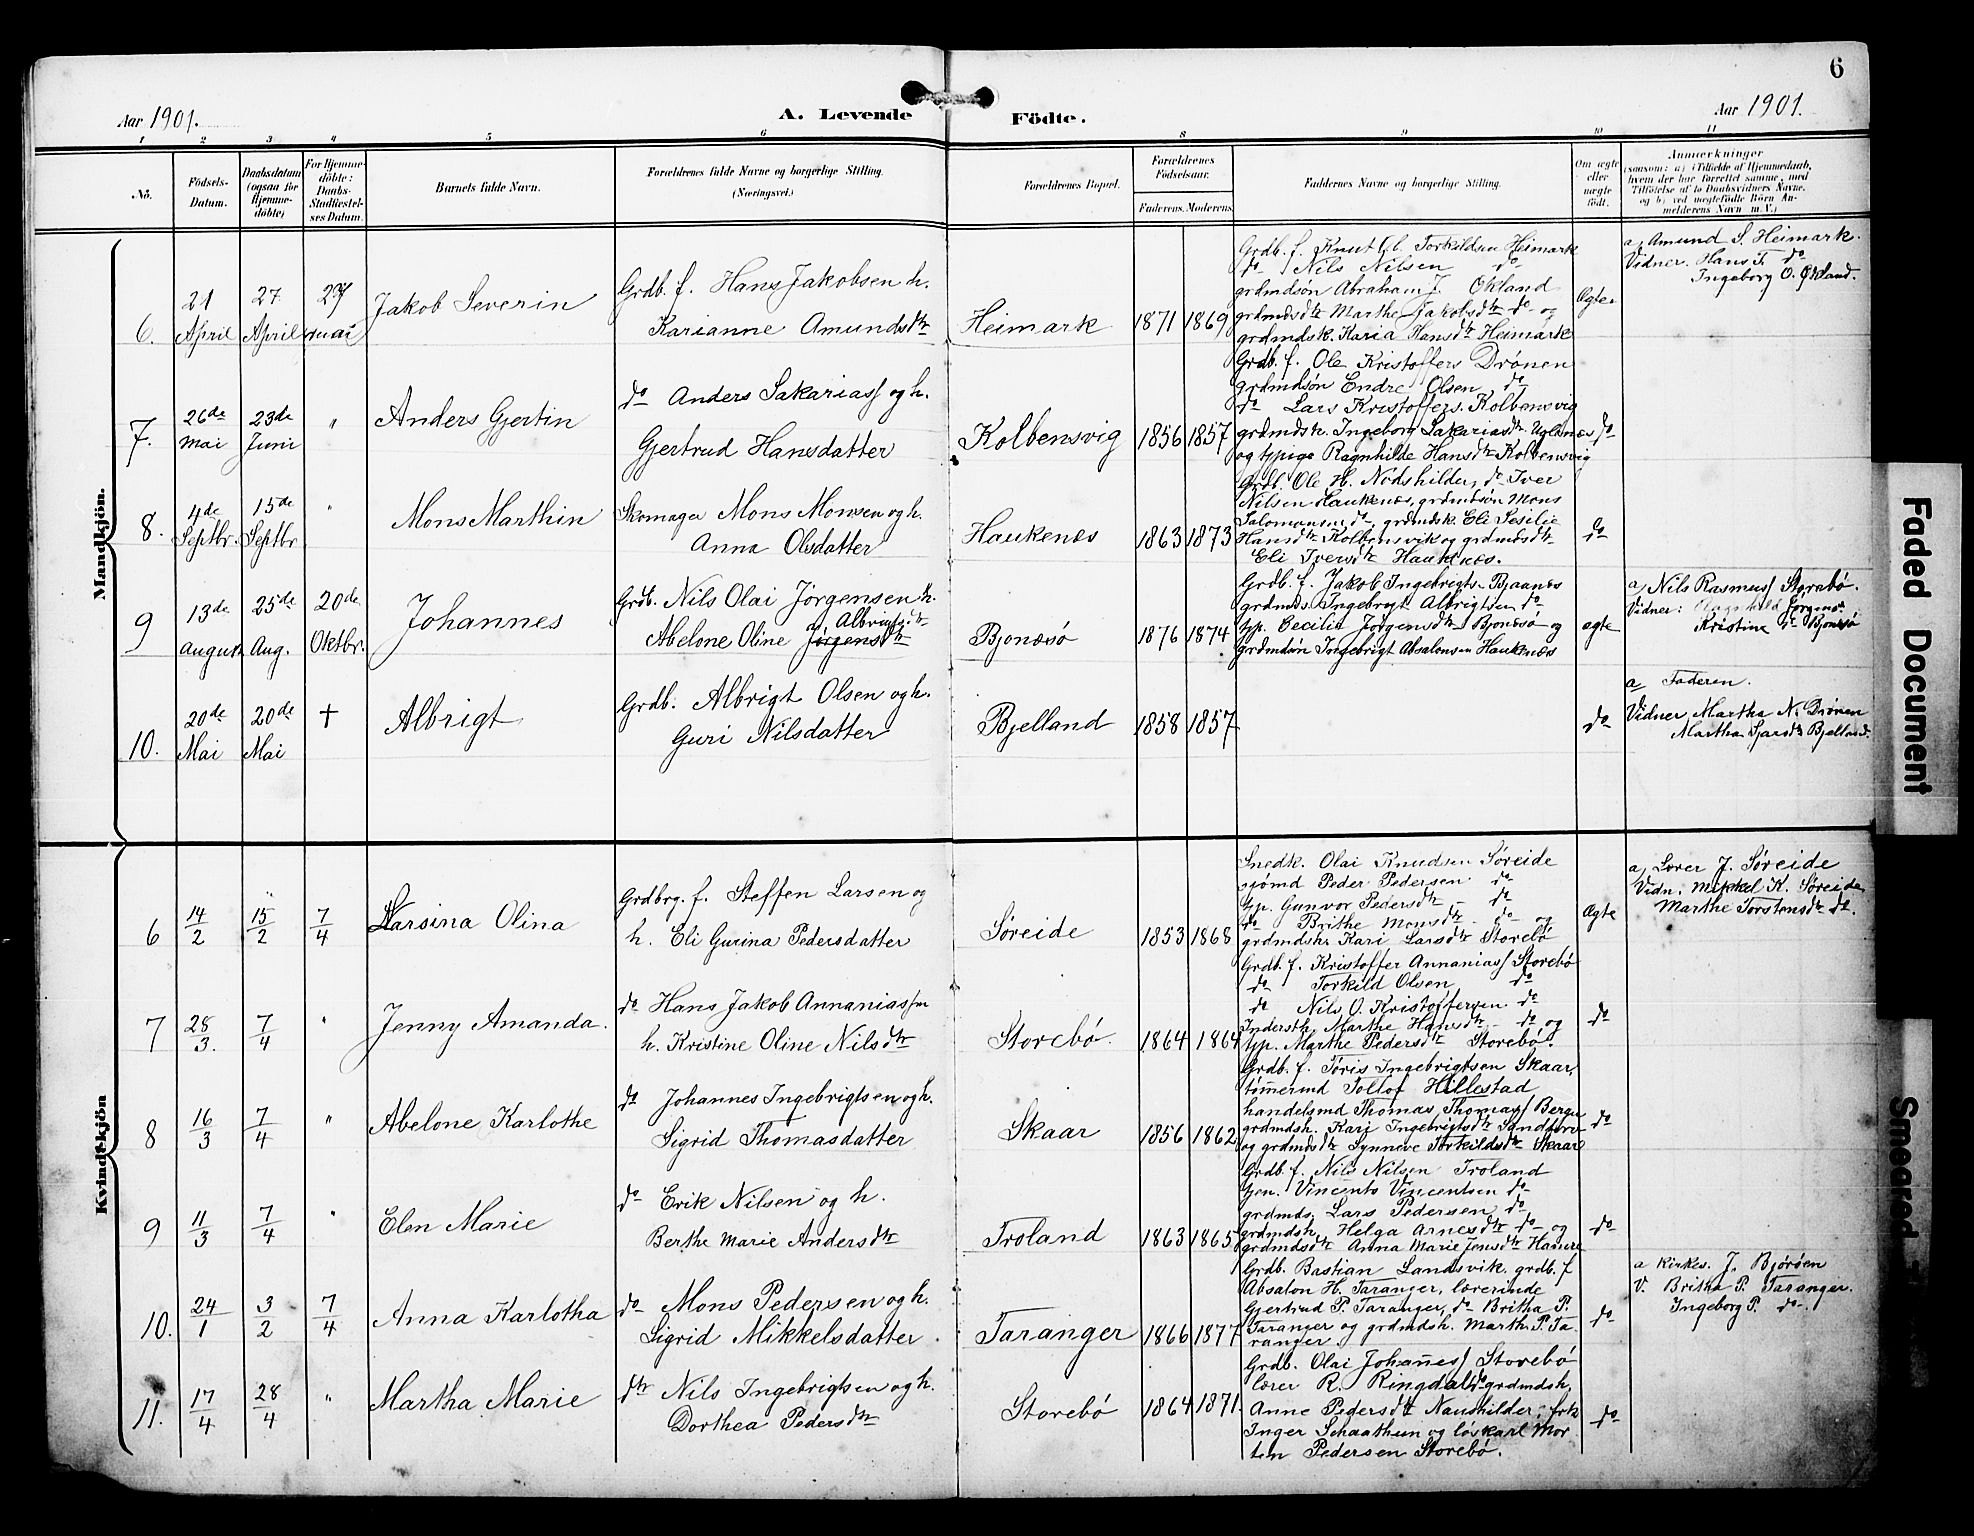 6
Aar 1901.
A. Levende Födte.
Aar 1901.
1 2 3 4 5 6 8 9 10 11
No.
Födsels-Datum.
Daabsdatum (ogsaa for Hjemme-döbte)
For Hjemme-döbte: Daabs-Stadfæstel-ses Datum.
Barnets fulde Navn.
Forældrenes fulde Navne og borgerlige Stilling. (Næringsvei.)
Forældrenes Bopæl.
Forældrenes Födselsaar.
Faderens. Moderens.
Faddernes Navne og borgerlige Stilling.
Om ægte eller uægte födt.
Anmærkninger
(saasom: a) i Tilfælde af Hjemmedaab, hvem der har forrettet samme, med Tilföielse af to Daabsvidners Navne, og b) ved uægtefödte Börn An-melderens Navn m. V.)
Mandkjön.
6. 21 April 27 April 27 mai Jakob Severin
Grdb. f. Hans Jakobsen h.
Karianne Amundsdtr
Heimark 1871 1869
Grdb. f. Knut Torkildsen Heimark
do Nils Nilsen do
grdmdsön Abraham J. Økland
grdmdsdtr Marthe Jakobsdtr do og
grdmdsk. Karia Hansdtr Heimark
Ægte
a, Amund S. Heimark.
Vidner. Hans T. do
Ingeborg O. Økland.
7. 26de Mai 23de Juni " Anders Gjertin
do Anders Sakarias og h.
Gjertrud Hansdatter
Kolbensvig 1856 1857
Grdb. f. Ole Kristoffers Drönen
grdmdsön Endre Olsen do
do Lars Kristoffers. Kolbensvig
grdmdsk. Ingeborg Sakariasdtr
og typige Ragnhilde Hansdtr Kolbensvig
do
8. 4de Septbr. 15de Septbr " Mons Marthin
Skomager Mons Monsen og h.
Anna Olsdatter
Haukenes 1863 1873
Grdb. Ole H. Nodshilder, do Iver
Nilsen Haukenæs, grdmdsön Mons
Salomonsen do, grdmdsk. Eli Sesilie
Hansdtr Kolbensvik og grdmdsdtr
Eli Iversdtr Hauknæs.
do
9 13de August 25de Aug. 20de Oktbr. Johannes
Grdb. Nils Olai Jörgensen h.
Abelone Oline Jörgensdtr Albrigtsdtr
Bjonesö 1876 1874
Grdb. f. Jakob Ingebrigts. Bjaanes
grdmds. Ingebrigt Albrigtsen do
gp. Cecilie Jörgensdtr Bjonesö og
grdmdsön Ingebrigt Absalonsen Haukenæs
ægte
a, Nils Rasmus Storebö.
Vidner: Jörgens.
Kristine do Bjonesö
10. 20de Mai 20de Mai † Albrigt
Grdb. Albrigt Olsen og h.
Guri Nilsdatter
Bjelland 1858 1857
do
a Faderen.
Vidner, Martha N. Drönen
Martha Bjelland.
Kvindekjön
6 14/2 15/2 7/4 Larsina Olina
Grdbrg. f. Steffen Larsen og
h. Eli Gurina Pedersdatter
Söreide 1853 1868
Snedk. Olai Knudsen Söreide
sjömd Peder Pedersen do
gp. Gunvor Pedersdtr do
do Brithe Monsdtr do og
grdmdsk. Kari Larsdtr Storebö
Ægte
a, Lærer J. Söreide
Vidn. Mikkel K. Söreide
Marthe Torstensdtr do.
7 28/3. 7/4 " Jenny Amanda.
do Hans Jakob Annaniassen
h. Kristine Oline Nilsdtr
Storebö. 1864 1864
Grdb. f. Kristoffer Annanias Storebö
do Torkild Olsen do
do Nils O. Kristoffersen do
Indersth. Marthe Hansdtr do og
gp. Marthe Pedersdtr Storebö.
do
8 16/3 7/4 " Abelone Karlothe
do Johannes Ingebrigtsen og h.
Sigrid Thomasdatter
Skaar 1856 1862
Grdb. f. Toris Ingebrigtsen Skaar,
tömermd Tollof Hillestad
handelsmd Thomas Thomas Bergen
grdmdsh. Kari Ingebrigtsdtr
og grdmdsdtr Synneve Torkildsdtr Skaar
do
9 11/3 7/4 " Elen Marie
do Erik Nilsen og h.
Berthe Marie Andersdtr
Troland 1863 1865
Grdb. f. Nils Nilsen Troland
Gen. Vincents Vincentsen do
grdmds. Lars Pedersen do
grdmdsh. Helga Arnesdtr do og
grdmdsdtr Anna Marie Jensdtr
do
10. 24/1 3/2 7/4 Anna Karlotha
do Mons Pedersen og h.
Sigrid Mikkelsdatter
Taranger 1866 1877
Grdb. Bastian Landsvik. grdb. f
Absalon H. Taranger, lærerinde
Gjertrud P. Taranger, do Britha P.
Taranger og grdmdsh. Marth. P. Ta-
ranger.
do
a Kirkes. J. Björöen
V. Britha P. Taranger.
Ingeborg P. do.
11. 17/4 28/4 " Martha Marie
Nils Ingebrigtsen og h.
Dorthea Pedersdtr
Storebö 1864 1871
Grdb. Olai Johannes Storebö
lærer R. Ringdal, grdmdsh.
Anne Pedersdtr Naushilder, frk
Inger Schaathun og löskarl Mor-
ten Pedersen Storebö.
do
Faded Document
Smeared